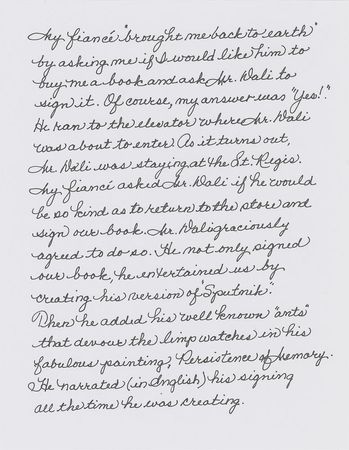 My fiancé "brought me back to earth"
by asking me if I would like him to
buy me a book and ask Mr. Dali to
sign it. Of course, my answer was "Yes!".
He ran to the elevator where Mr. Dali
was about to enter. As it turns out,
Mr. Dali was staying at the St. Regis.
My fiancé asked Mr. Dali if he would
be so kind as to return to the store and
sign our book. Mr. Dali graciously
agreed to do so. He not only signed
our book, he entertained us by
creating his version of "Sputnik".
Then he added his well known "ants"
that devour the limp watches in his
fabulous painting, Persistence of Memory.
He narrated (in English) his signing
all the time he was creating.